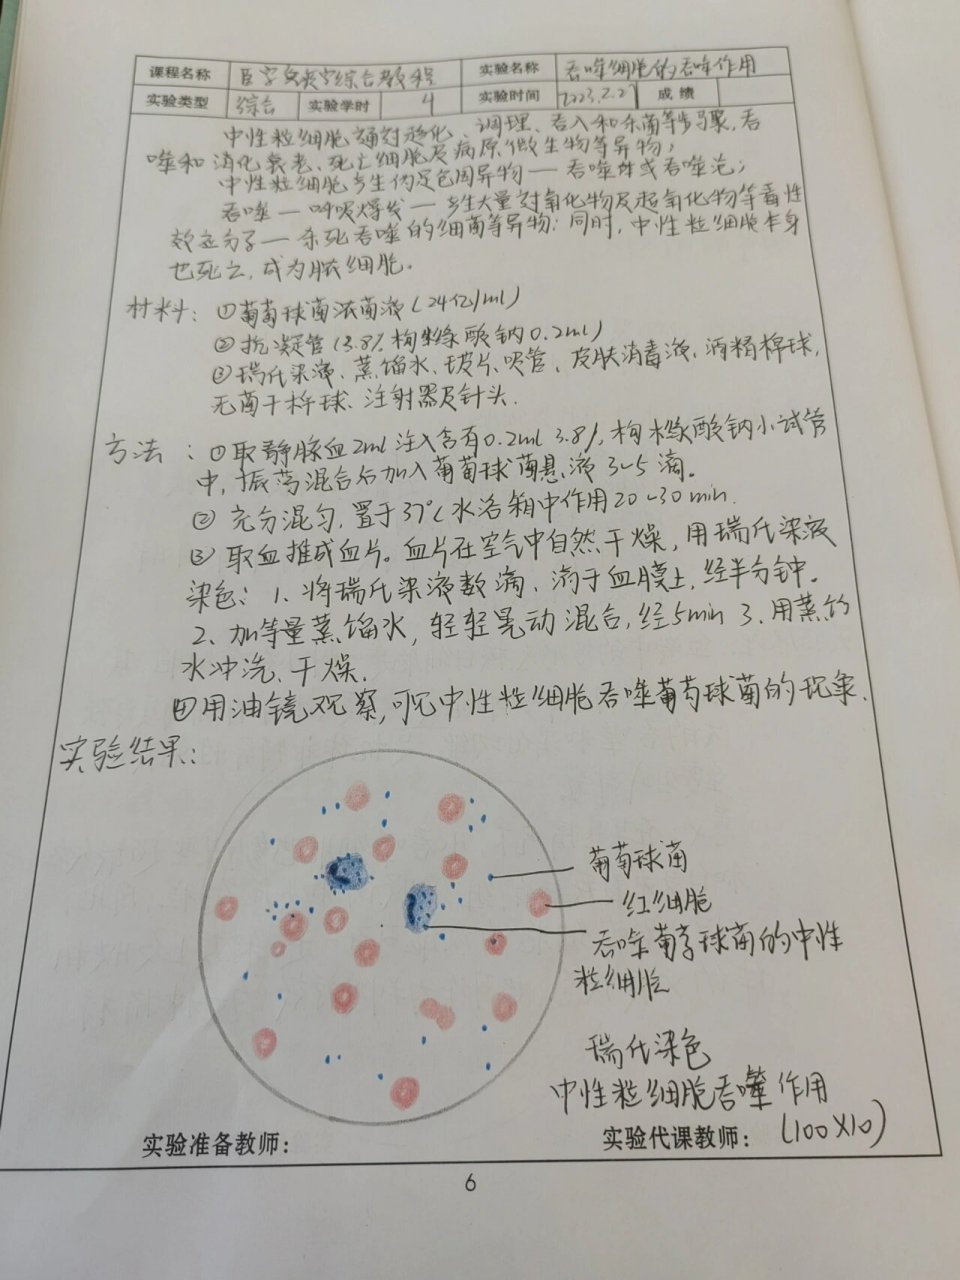 课程名称 医学免疫学综合教程 实验名称 吞噬细胞的吞噬作用
实验类型 综合 实验学时 4 实验时间 2023.2.27 成绩
中性粒细胞通过趋化、调理、吞入和杀菌等步骤,吞
噬和消化衰老、死亡细胞及病原微生物等异物;
中性粒细胞产生伪足包围异物—吞噬体或吞噬泡;
吞噬—呼吸爆发—产生大量过氧化物及超氧化物等毒性
效应分子—杀死吞噬的细菌等异物;同时,中性粒细胞本身
也死亡,成为脓细胞。
材料:①葡萄球菌浓菌液(24亿/ml)
②抗凝管(3.8%枸橼酸钠0.2ml)
③瑞氏染液、蒸馏水、玻片、吸管、皮肤消毒液、酒精棉球,
无菌干棉球、注射器及针头.
方法:①取静脉血2ml注入含有0.2ml 3.8%枸橼酸钠小试管
中,振荡混合后加入葡萄球菌悬液3~5滴。
② 充分混匀,置于37℃水浴箱中作用20~30min.
③ 取血推成血片。血片在空气中自然干燥,用瑞氏染液
染色:1、将瑞氏染液数滴、滴于血膜上,经半分钟。
2、加等量蒸馏水,轻轻晃动混合,经5min 3、用蒸馏
水冲洗、干燥.
④用油镜观察,可见中性粒细胞吞噬葡萄球菌的现象.
实验结果:
葡萄球菌
红细胞
吞噬葡萄球菌的中性
粒细胞
瑞氏染色
中性粒细胞吞噬作用
(100×10)
实验准备教师: 实验代课教师:
6